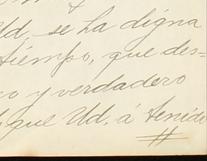 Ud, se ha digna
tiempo, que des-
o y verdadero
que Ud, á tenido